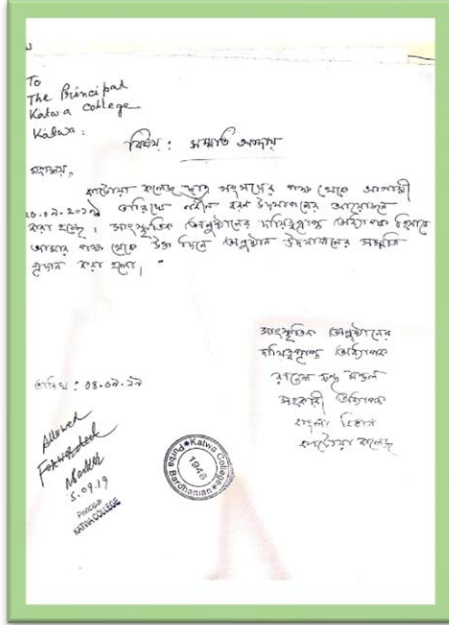 To
The Principal
Katwa College.
Katwa:
বিষয় : সম্মতি প্রদান
মহাশয়,
কাটোয়া কলেজ ছাত্র সংসদের পক্ষ থেকে আগামী
তারিখে নবীন বরণ উদযাপনের আয়োজন
করা হয়েছে। সাংস্কৃতিক অনুষ্ঠানের দায়িত্বপ্রাপ্ত অধ্যাপক হিসাবে
আমার পক্ষ থেকে উক্ত দিনে অনুষ্ঠান উদযাপনের সম্মতি
প্রদান করা হলো।
সাংস্কৃতিক অনুষ্ঠানের
দায়িত্বপ্রাপ্ত অধ্যাপক
মন্ডল
সহকারী অধ্যাপক
বাংলা বিভাগ
কাটোয়া কলেজ
তারিখ : ০৪.০৯.১৯
Allowed
Forwarded
5.09.19
KATWA COLLEGE
Katwa College
1948
Bardhaman